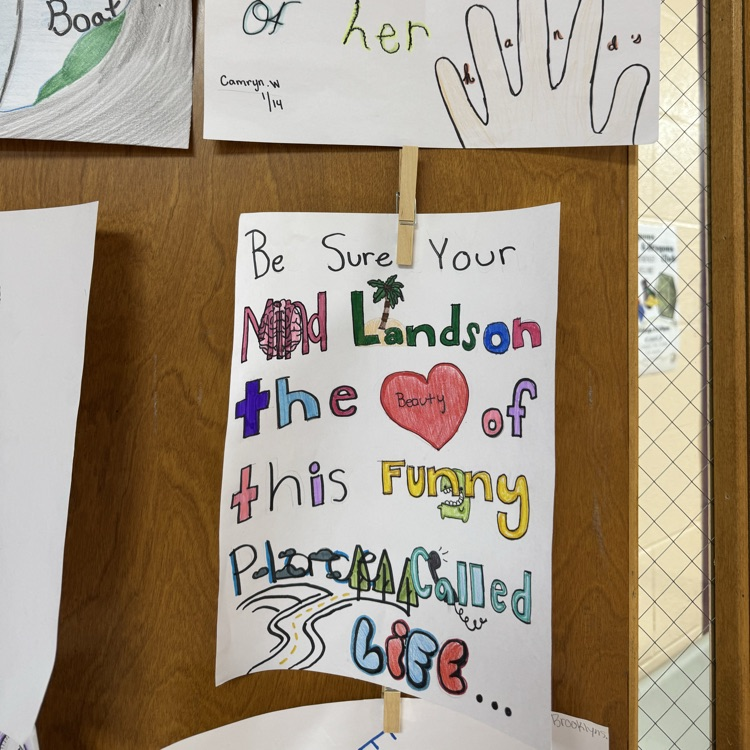 Boat
of her
h a n d's
Camryn.W
1/14
Be Sure Your
Mind Lands on
the Beauty of
this Funny
Place Called
LIFE...
Brooklyn